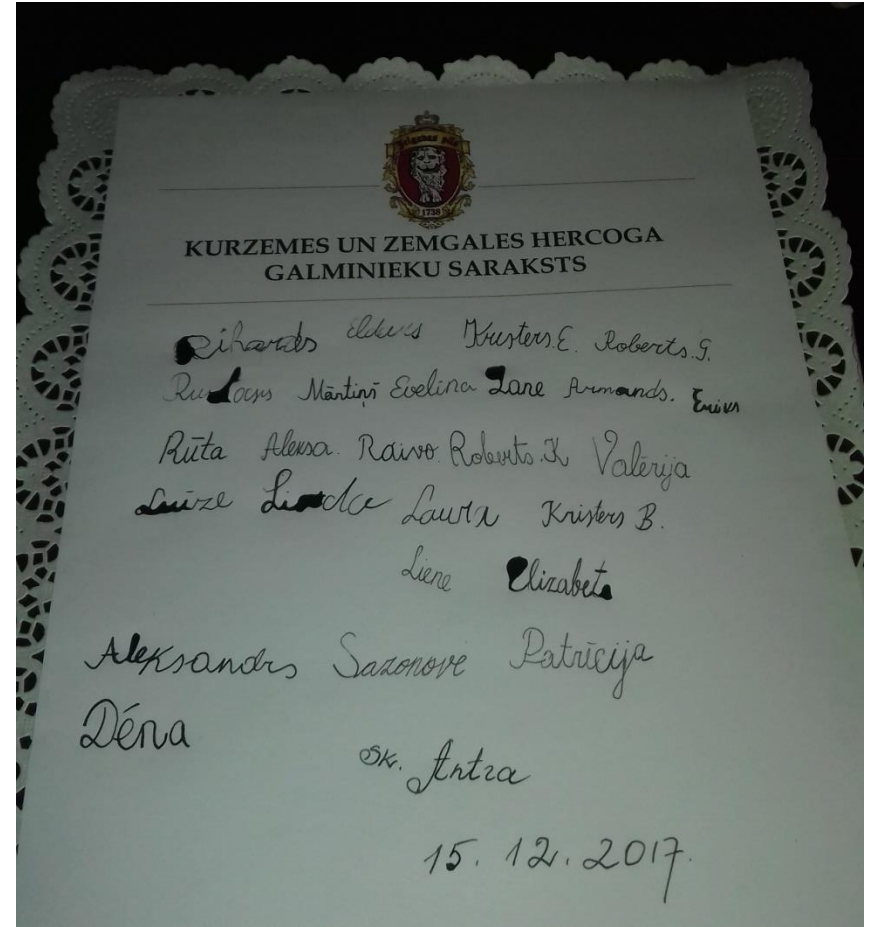 Jelgavas pils
1738
KURZEMES UN ZEMGALES HERCOGA
GALMINIEKU SARAKSTS
Rihards Kristers.E. Roberts.G.
Mārtiņš Evelina Zane Armands.
Rūta Aleksa. Raivo. Roberts.K Valērija
Luīze Linda Laura Kristers B.
Liene Elizabete
Aleksandrs Sazonovs Patrīcija
Dēna
sk. Antra
15.12.2017.